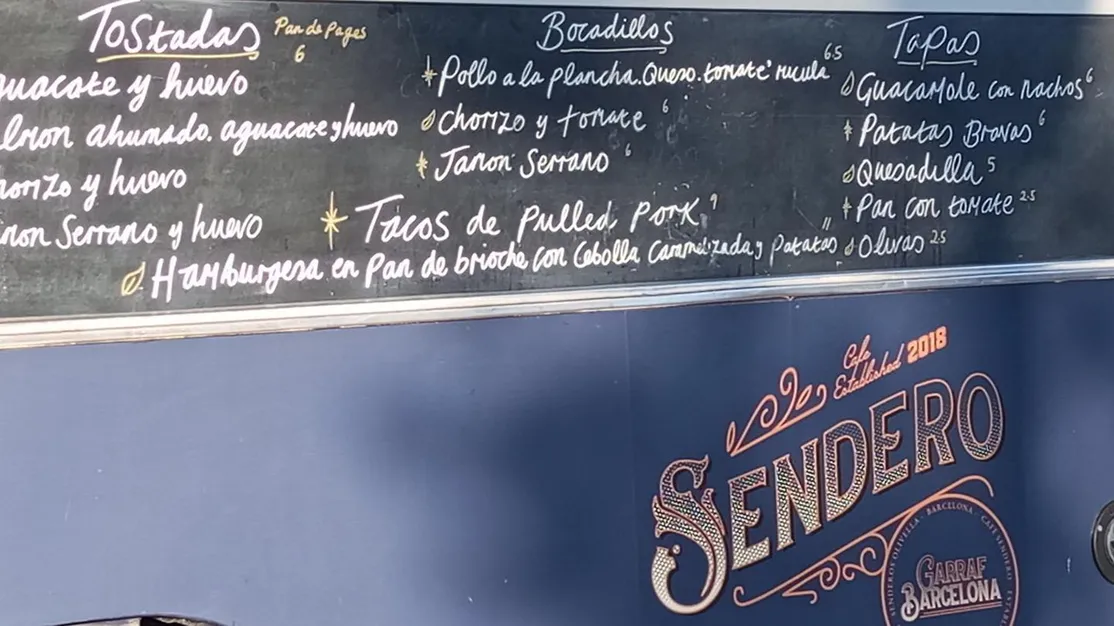 Tostadas Pan de Pages
6
guacate y huevo
lmon ahumado. aguacate y huevo
horizo y huevo
mon Serrano y huevo
Bocadillos
Pollo a la plancha. Queso. tomate rucula 6.5
Chorizo y tomate 6
Jamon Serrano 6
Tacos de pulled pork 9
Hamburgesa en pan de brioche con Cebolla Caramelizada y patatas 11
Tapas
Guacamole con nachos 6
Patatas Bravas 6
Quesadilla 5
Pan con tomate 2.5
Olivas 2.5
Cafe
Established 2018
SENDERO
SENDEROS OLIVELLA - BARCELONA - CAFE SENDERO
GARRAF
BARCELONA